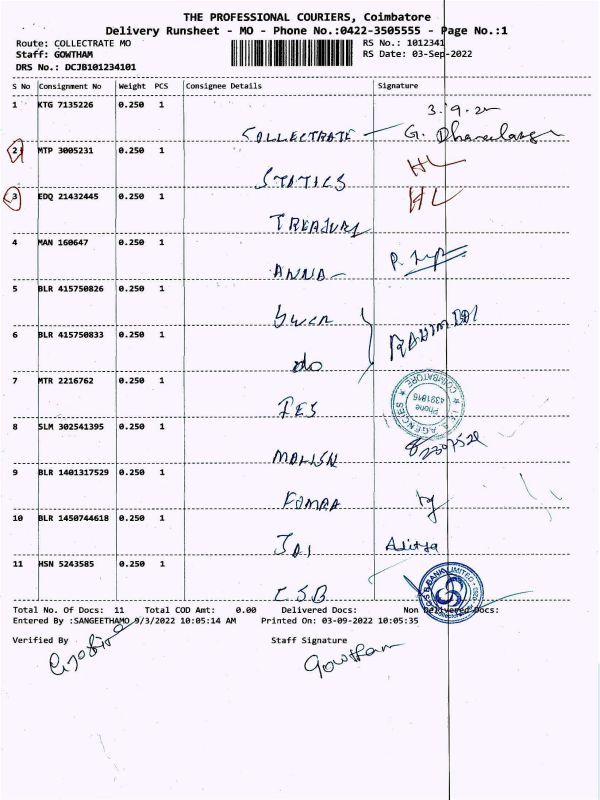 THE PROFESSIONAL COURIERS, Coimbatore
Delivery Runsheet - MO - Phone No.:0422-3505555 - Page No.:1
Route: COLLECTRATE MO RS No.: 1012341
Staff: GOWTHAM RS Date: 03-Sep-2022
DRS No.: DCJB101234101
S No Consignment No Weight PCS Consignee Details Signature
1 KTG 7135226 0.250 1
3.9.22
COLLECTRATE
2 MTP 3005231 0.250 1
HL
STATICS
3 EDQ 21432445 0.250 1
HL
TREASURY
4 MAN 160647 0.250 1
ANNA
5 BLR 415750826 0.250 1
6 BLR 415750833 0.250 1
do
7 MTR 2216762 0.250 1
COIMBATORE
Phone
4391816
AGENCIES
8 SLM 302541395 0.250 1
9 BLR 1401317529 0.250 1
10 BLR 1450744618 0.250 1
JAI Aditya
11 HSN 5243585 0.250 1
CSB
CSB BANK LIMITED
Total No. Of Docs: 11 Total COD Amt: 0.00 Delivered Docs: Non Delivered Docs:
Entered By :SANGEETHAMO 9/3/2022 10:05:14 AM Printed On: 03-09-2022 10:05:35
Verified By Staff Signature
Gowtham